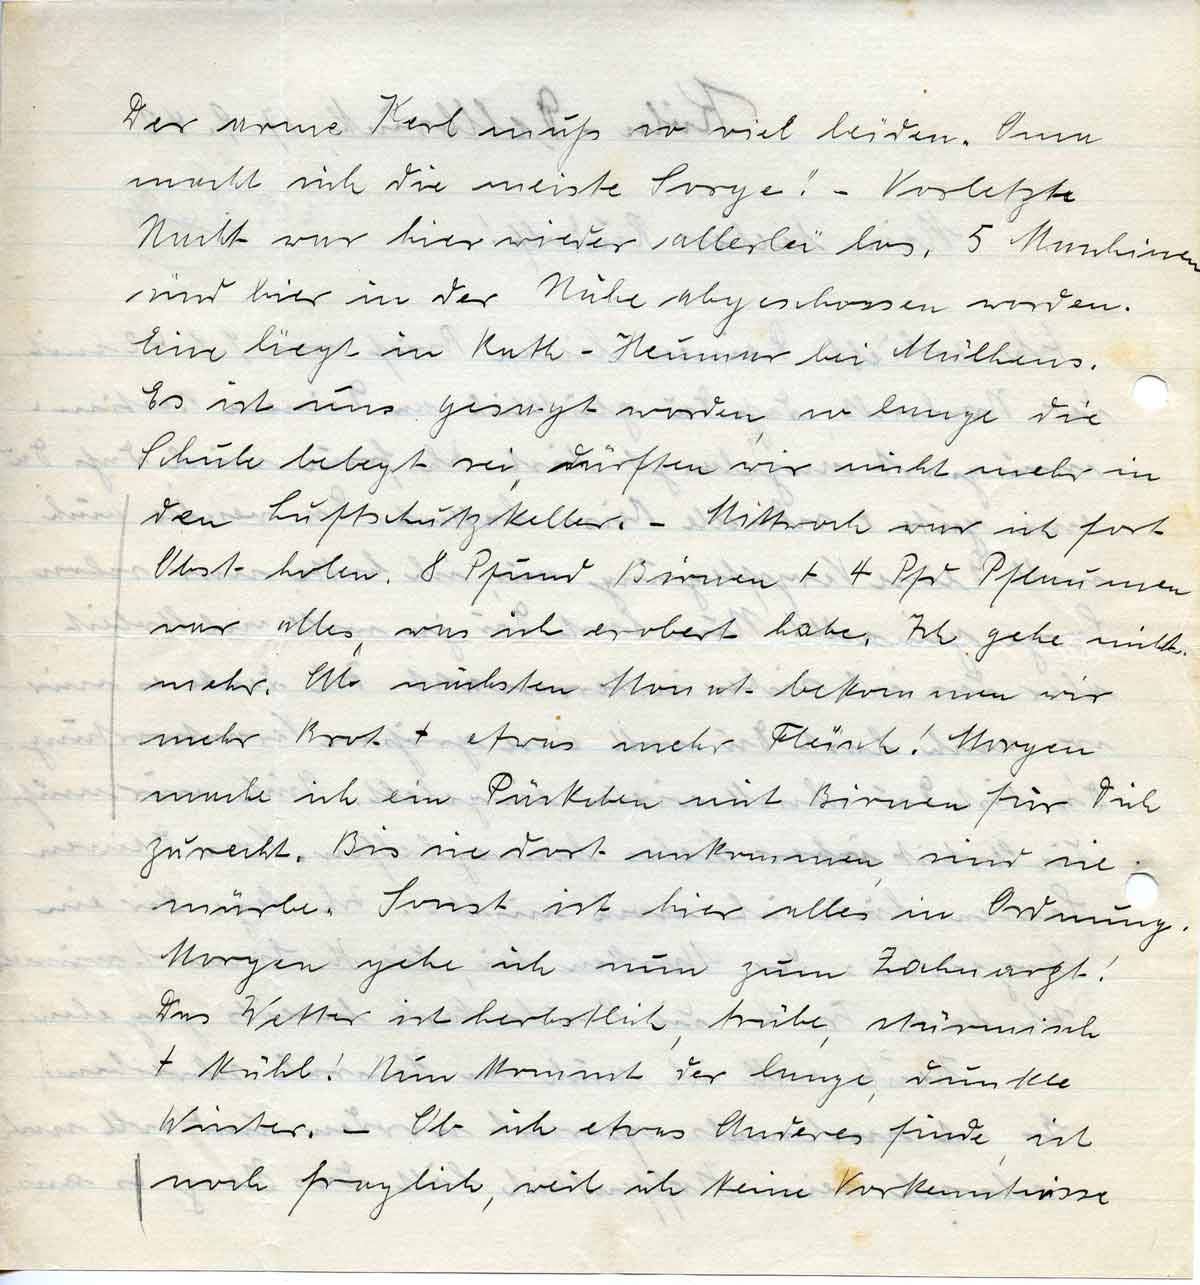 Der arme Kerl muß so viel leiden. Oma
macht sich die meiste Sorge! – Vorletzte
Nacht war hier wieder allerlei los. 5 Maschinen
sind hier in der Nähe abgeschossen worden.
Eine liegt in Rath-Heumar bei Mülhens.
Es ist uns gesagt worden, so lange die
Schule belegt sei, dürften wir nicht mehr in
den Luftschutzkeller. – Mittwoch war ich fort
Obst holen. 8 Pfund Birnen + 4 Pfd Pflaumen
war alles, was ich erobert habe. Ich gehe nicht
mehr. Ab nächsten Monat bekommen wir
mehr Brot + etwas mehr Fleisch! Morgen
mache ich ein Päckchen mit Birnen für Dich
zurecht. Bis sie dort ankommen, sind sie
mürbe. Sonst ist hier alles in Ordnung.
Morgen gehe ich nun zum Zahnarzt!
Das Wetter ist herbstlich, trübe, stürmisch
+ kühl! Nun kommt der lange, dunkle
Winter. – Ob ich etwas Anderes finde, ist
noch fraglich, weil ich keine Vorkenntnisse